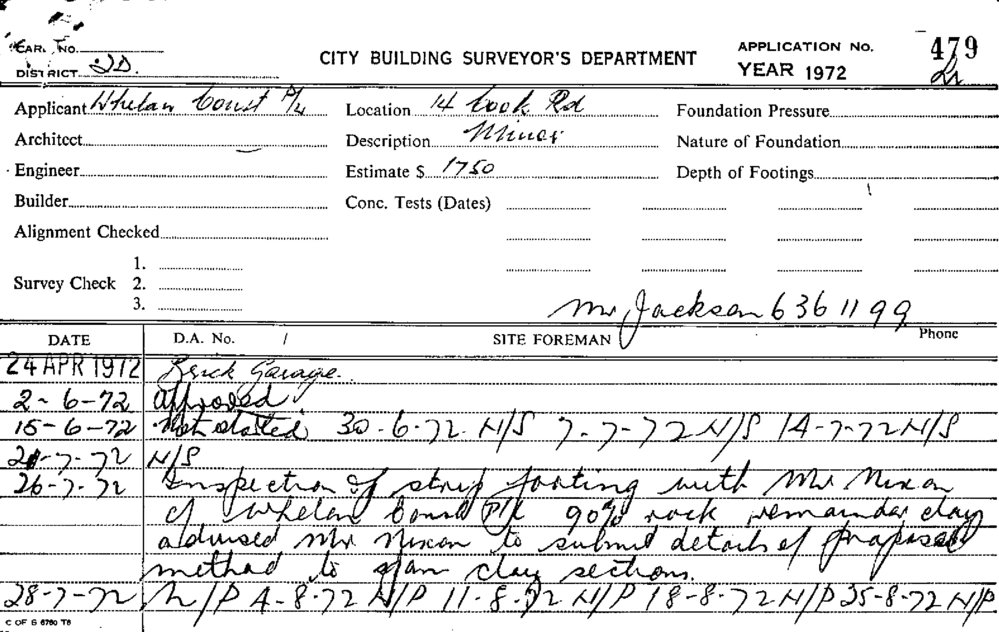 CARD No.
DISTRICT JD.
CITY BUILDING SURVEYOR'S DEPARTMENT
APPLICATION No. 479
YEAR 1972
Applicant Whelan Const P/L
Location 14 Cook Rd
Foundation Pressure
Architect
Description Minor
Nature of Foundation
Engineer
Estimate $ 1750
Depth of Footings
Builder
Conc. Tests (Dates)
Alignment Checked
Survey Check 1.
2.
3.
Mr Jackson 636 1199
DATE D.A. No. / SITE FOREMAN Phone
24 APR 1972 Brick Garage.
2-6-72 Approved
15-6-72 Not started 30-6-72 N/S 7-7-72 N/S 14-7-72 N/S
21-7-72 N/S
26-7-72 Inspection of strip footing with Mr Nixon
of Whelan Const P/L 90% rock remainder clay
advised Mr Nixon to submit details of proposed
method to span clay sections.
28-7-72 N/P 4-8-72 N/P 11-8-72 N/P 18-8-72 N/P 25-8-72 N/P
C OF S 6760 T6